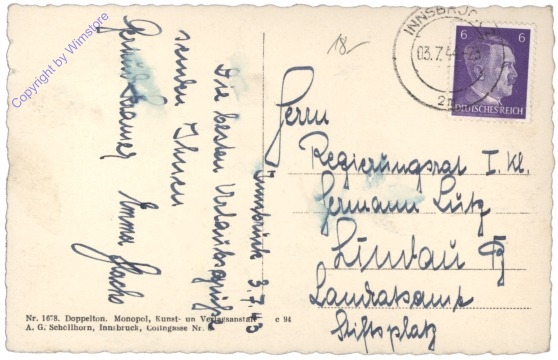 Copyright by Wimstore
18.-
INNSBRUCK
03.7.4
6 6
DEUTSCHES REICH
Herrn
Regierungsrat I. Kl.
Hermann Lutz
Lindau
Landratsamt
Stiftsplatz
Innsbruck 3.7.43
Die besten Urlaubsgrüße
senden Ihnen
Kramer Emma
Nr. 1678. Doppelton. Monopol, Kunst- un Verlagsanstalt c 94
A. G. Schöllhorn, Innsbruck, Colingasse Nr.